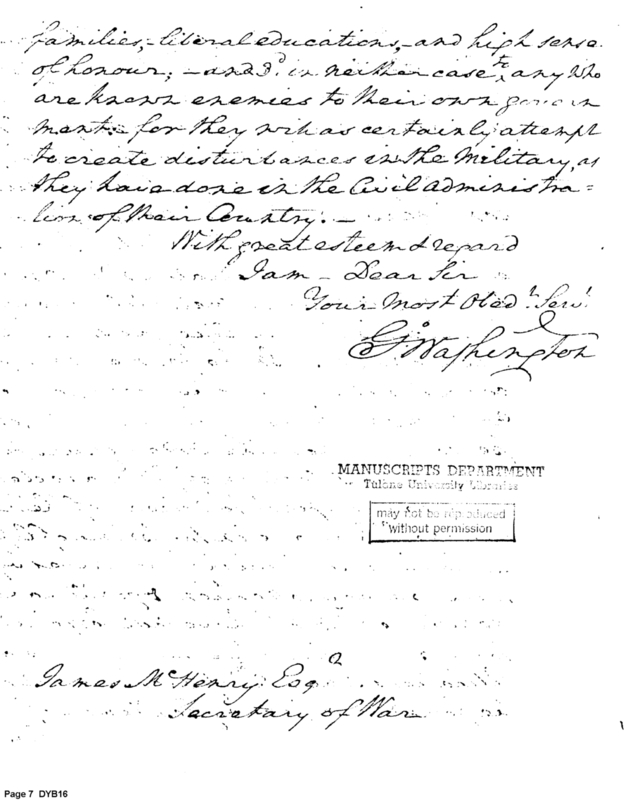 families,—liberal educations,—and high sense
of honour;—and 3d. in neither case, to any who
are known enemies to their own govern
ment: for they will as certainly attempt
to create disturbances in the Military, as
they have done in the Civil administra=
tion of their Country.—
With great esteem & regard
I am – Dear Sir
Your Most Obedt. Servt.
Go Washington
MANUSCRIPTS DEPARTMENT
Tulane University Libraries
may not be reproduced
without permission
James McHenry Esqr
Secretary of War
Page 7 DYB16